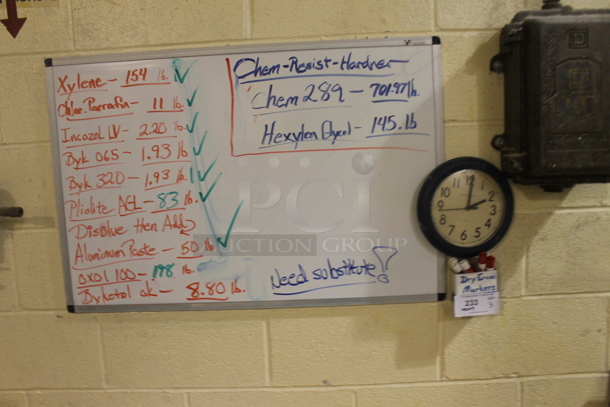 Xylene - 154 lb. ✓
Chlor. Parrafin - 11 lb. ✓
Incozol LV - 2.20 lb. ✓
Byk 065 - 1.93 lb ✓
Byk 320 - 1.93 lb. ✓
Pliolite AC-L - 83 lb. ✓
Disolve Then Add
Aluminum Paste - 50 lb ✓
oxol 100 - 198 lb.
Byketol ok - 8.80 lb.
Chem-Resist-Hardner
Chem 289 - 701.97 lb.
Hexylen Glycol - 145. lb
Need substitute!
PCI
AUCTION GROUP
12 1 2 3 4 5 6 7 8 9 10 11
Dry Erase
Markers
233